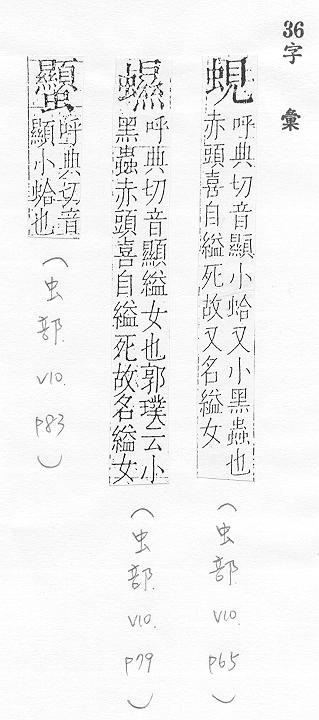 36字彙
蜆
呼典切音顯小蛤又小黑蟲也
赤頭喜自縊死故又名縊女
（虫部 V10. P65）
呼典切音顯縊女也郭璞云小
黑蟲赤頭喜自縊死故名縊女
（虫部 V10. P79）
呼典切音
顯小蛤也
（虫部 V10. P83）